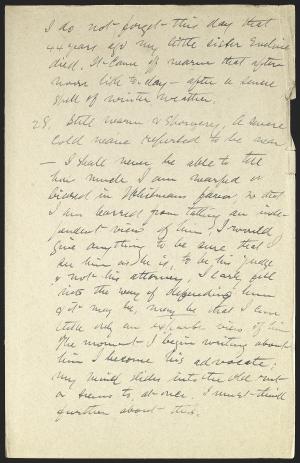 I do not forget this day that
44 years ago my little sister Eveline
died. It came off warm that after-
noon like to-day – after a severe
spell of winter weather.
28. Still warm & Spongy, a severe
cold wave reported to be near
– I shall never be able to tell
how much I am warped or
biased in Whitman's favor, so that
I am barred from taking an inde-
pendent view of him. I would
give anything to be sure that I
see him as he is, to be his judge
& not his attorney. I early fell
into the way of defending him
& it may be, may be that I can
take only an exparte view of him
The moment I begin writing about
him I become his advocate;
my mind slides into the old rut
or seems to, at once. I must think
further about this.